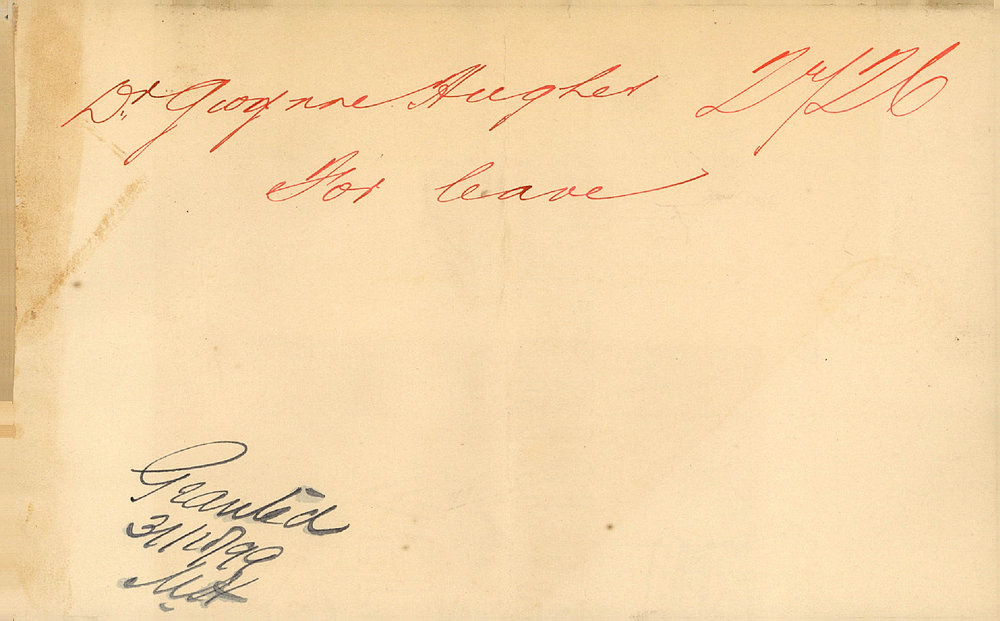 Dr. Gwynne Hughes 24/26
For leave
Granted
31/10/99